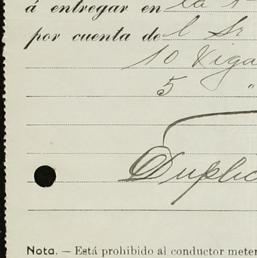 á entregar en la
por cuenta del Sr
10 Viga
5 "
Duplic
Nota. — Está prohibido al conductor meter